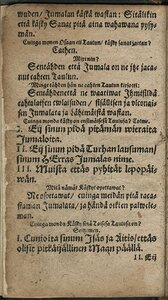 wuden/ Jumalan tästä wastan: Sitälikin
että tästy Sanat pitä aina wahawana pysy-
män.
Cuinga monen Osaan on Taulun/ tästy sanat jaetan?
Cahten.
Mixi nin?
Sentähden että Jumala on ne itze jaca-
nut cahten Taulun.
Minga tähden hän ne cahten Tauluun kirioti?
Sentähdenettä ne waatiwat Ihmisildä
cahtalaisen cuuliaisuden/ sisälisen ja ulconai-
sen Jumalata ja lähimäistä wastan.
Cuinga monda Kästyä on ensimäisesä Taulusa? Colme.
I. Ei sinun pidä pitämän wieraita
Jumaloita.
II. Ei sinun pidä Turhan lausuman/
sinun HErras Jumalas nime.
III. Muista ettäs pyhität lepopäi-
wän.
Mitä nämät Kästyt opettawat?
Ne osottawat/ cuinga meidän pitä raca-
staman Jumalata/ ja händä oikein palwele-
man.
Cuinga monda Kästyä sinä Toisesa Taulusa on?
Seitzemen.
I. Cunioita sinun Isäs ja Äitis/ ettäs
olisit pitkäijällinen Maan päällä.
II. Ei